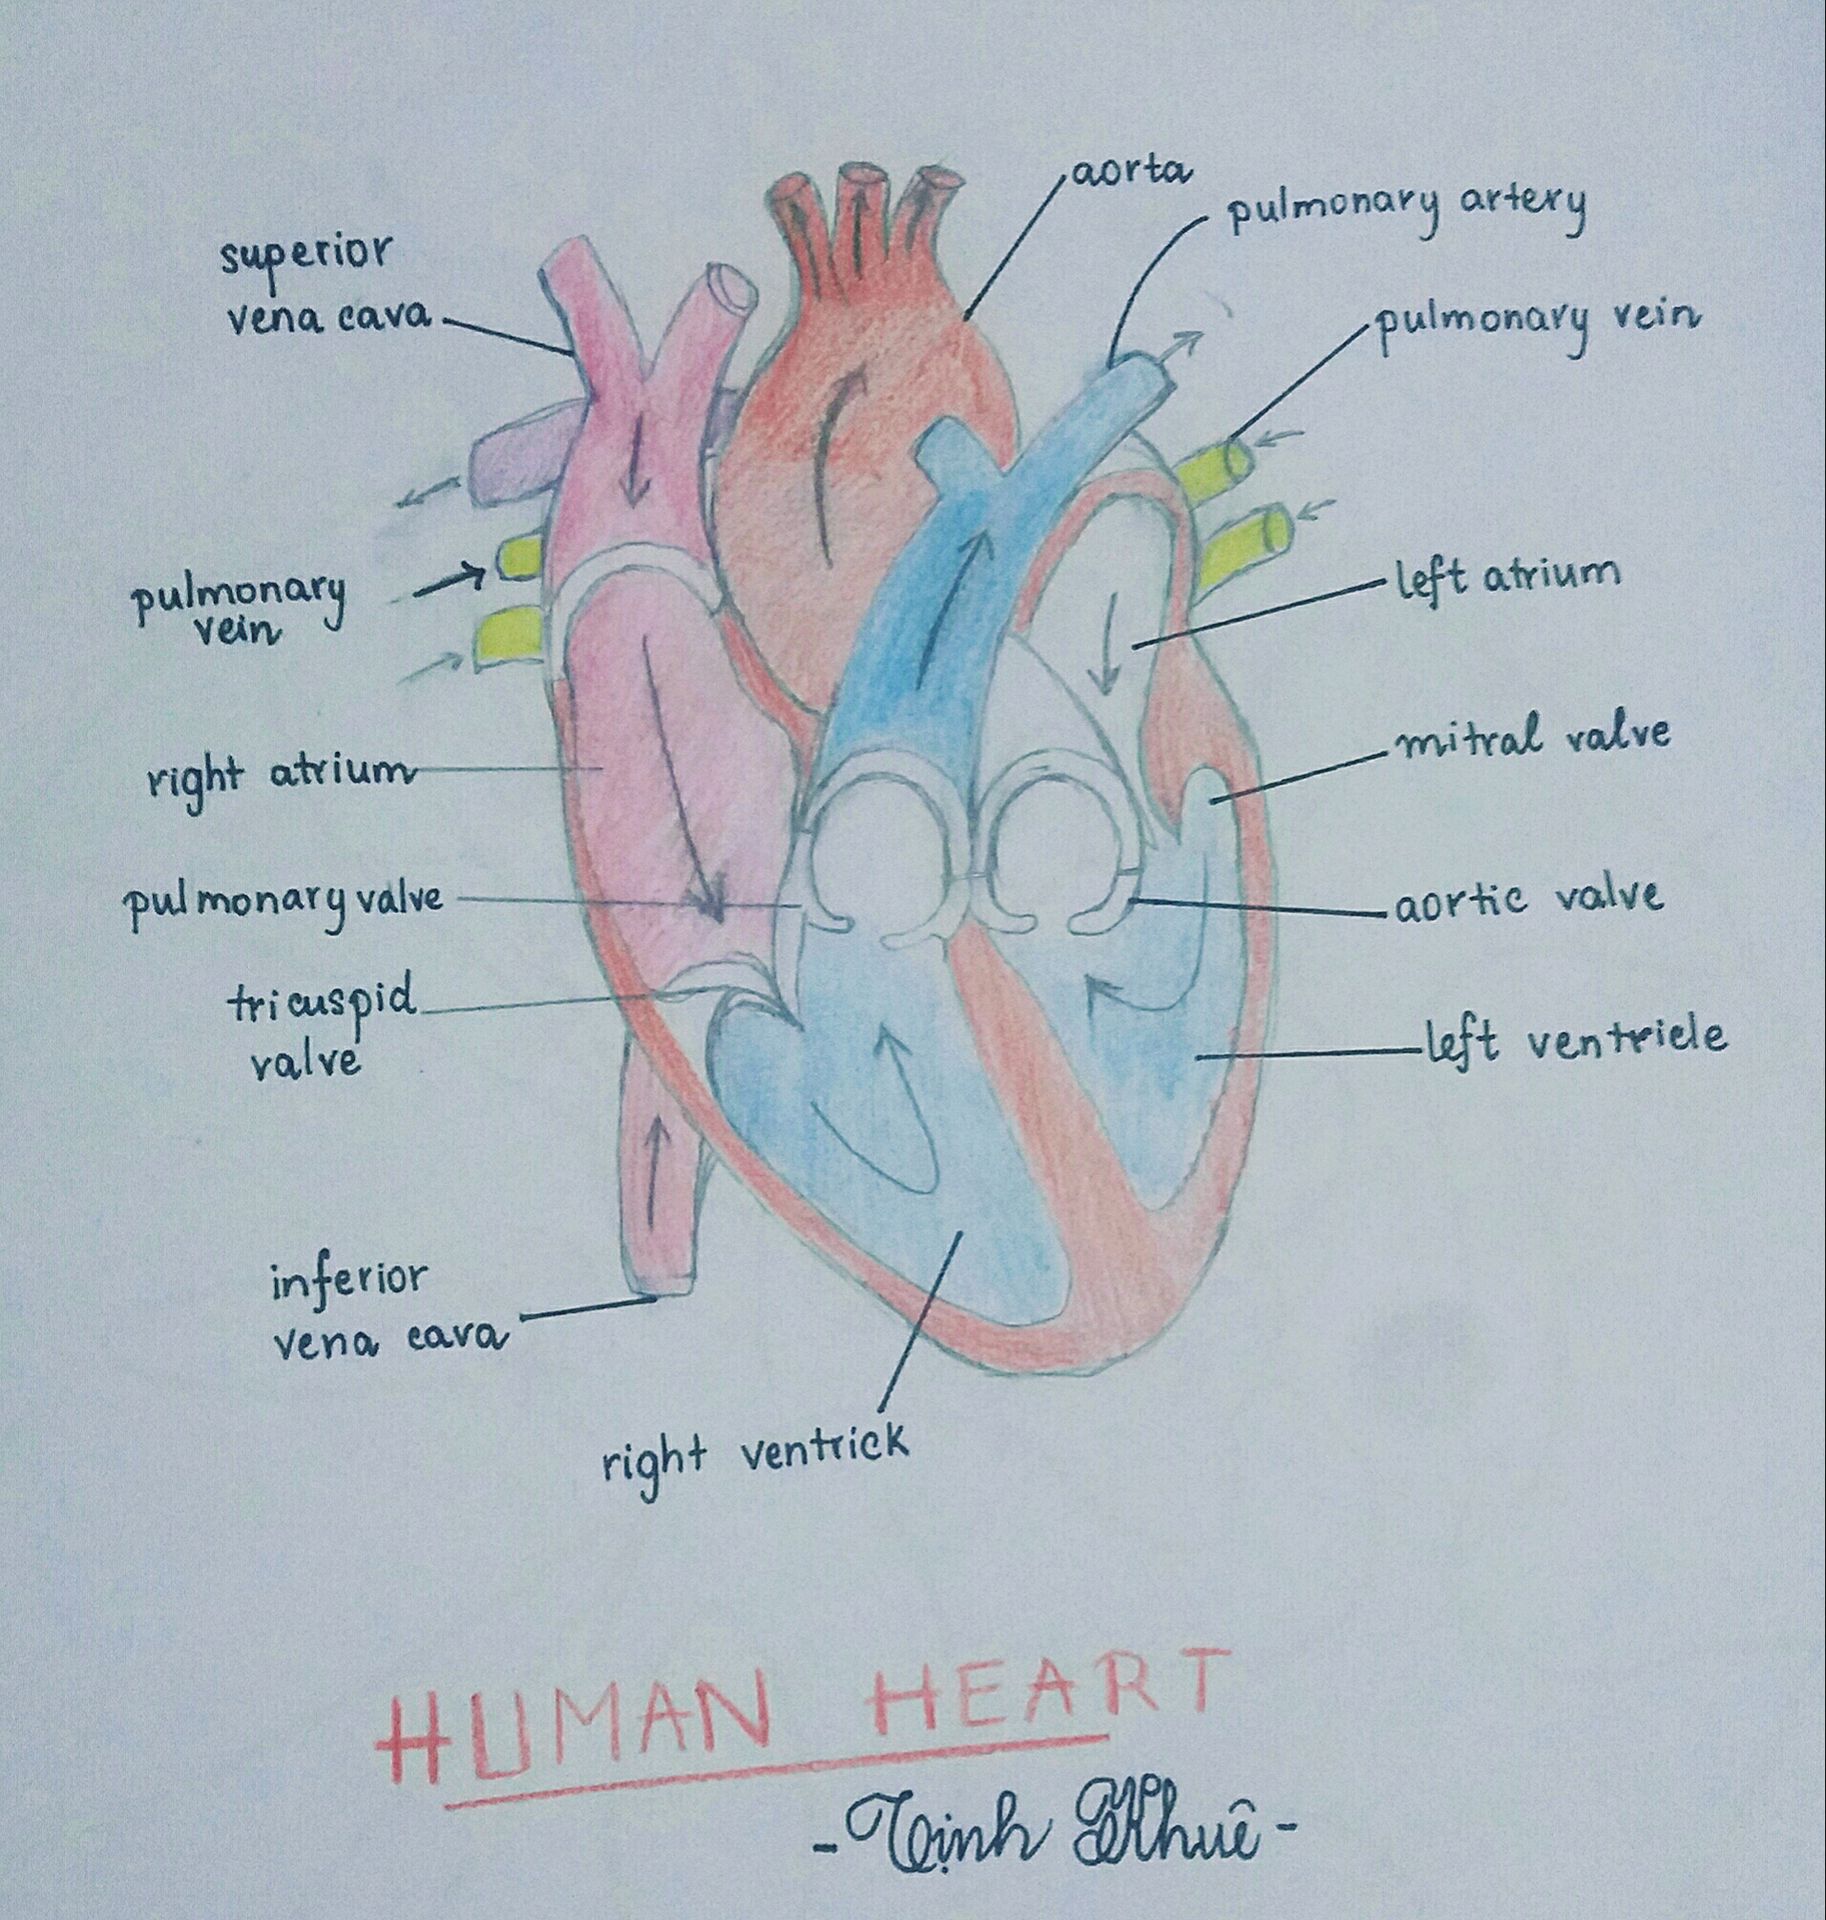 aorta
pulmonary artery
superior
vena cava
pulmonary vein
pulmonary
vein
left atrium
right atrium
mitral valve
pulmonary valve
aortic valve
tricuspid
valve
left ventricle
inferior
vena cava
right ventrick
HUMAN HEART
-Tịnh Khuê-